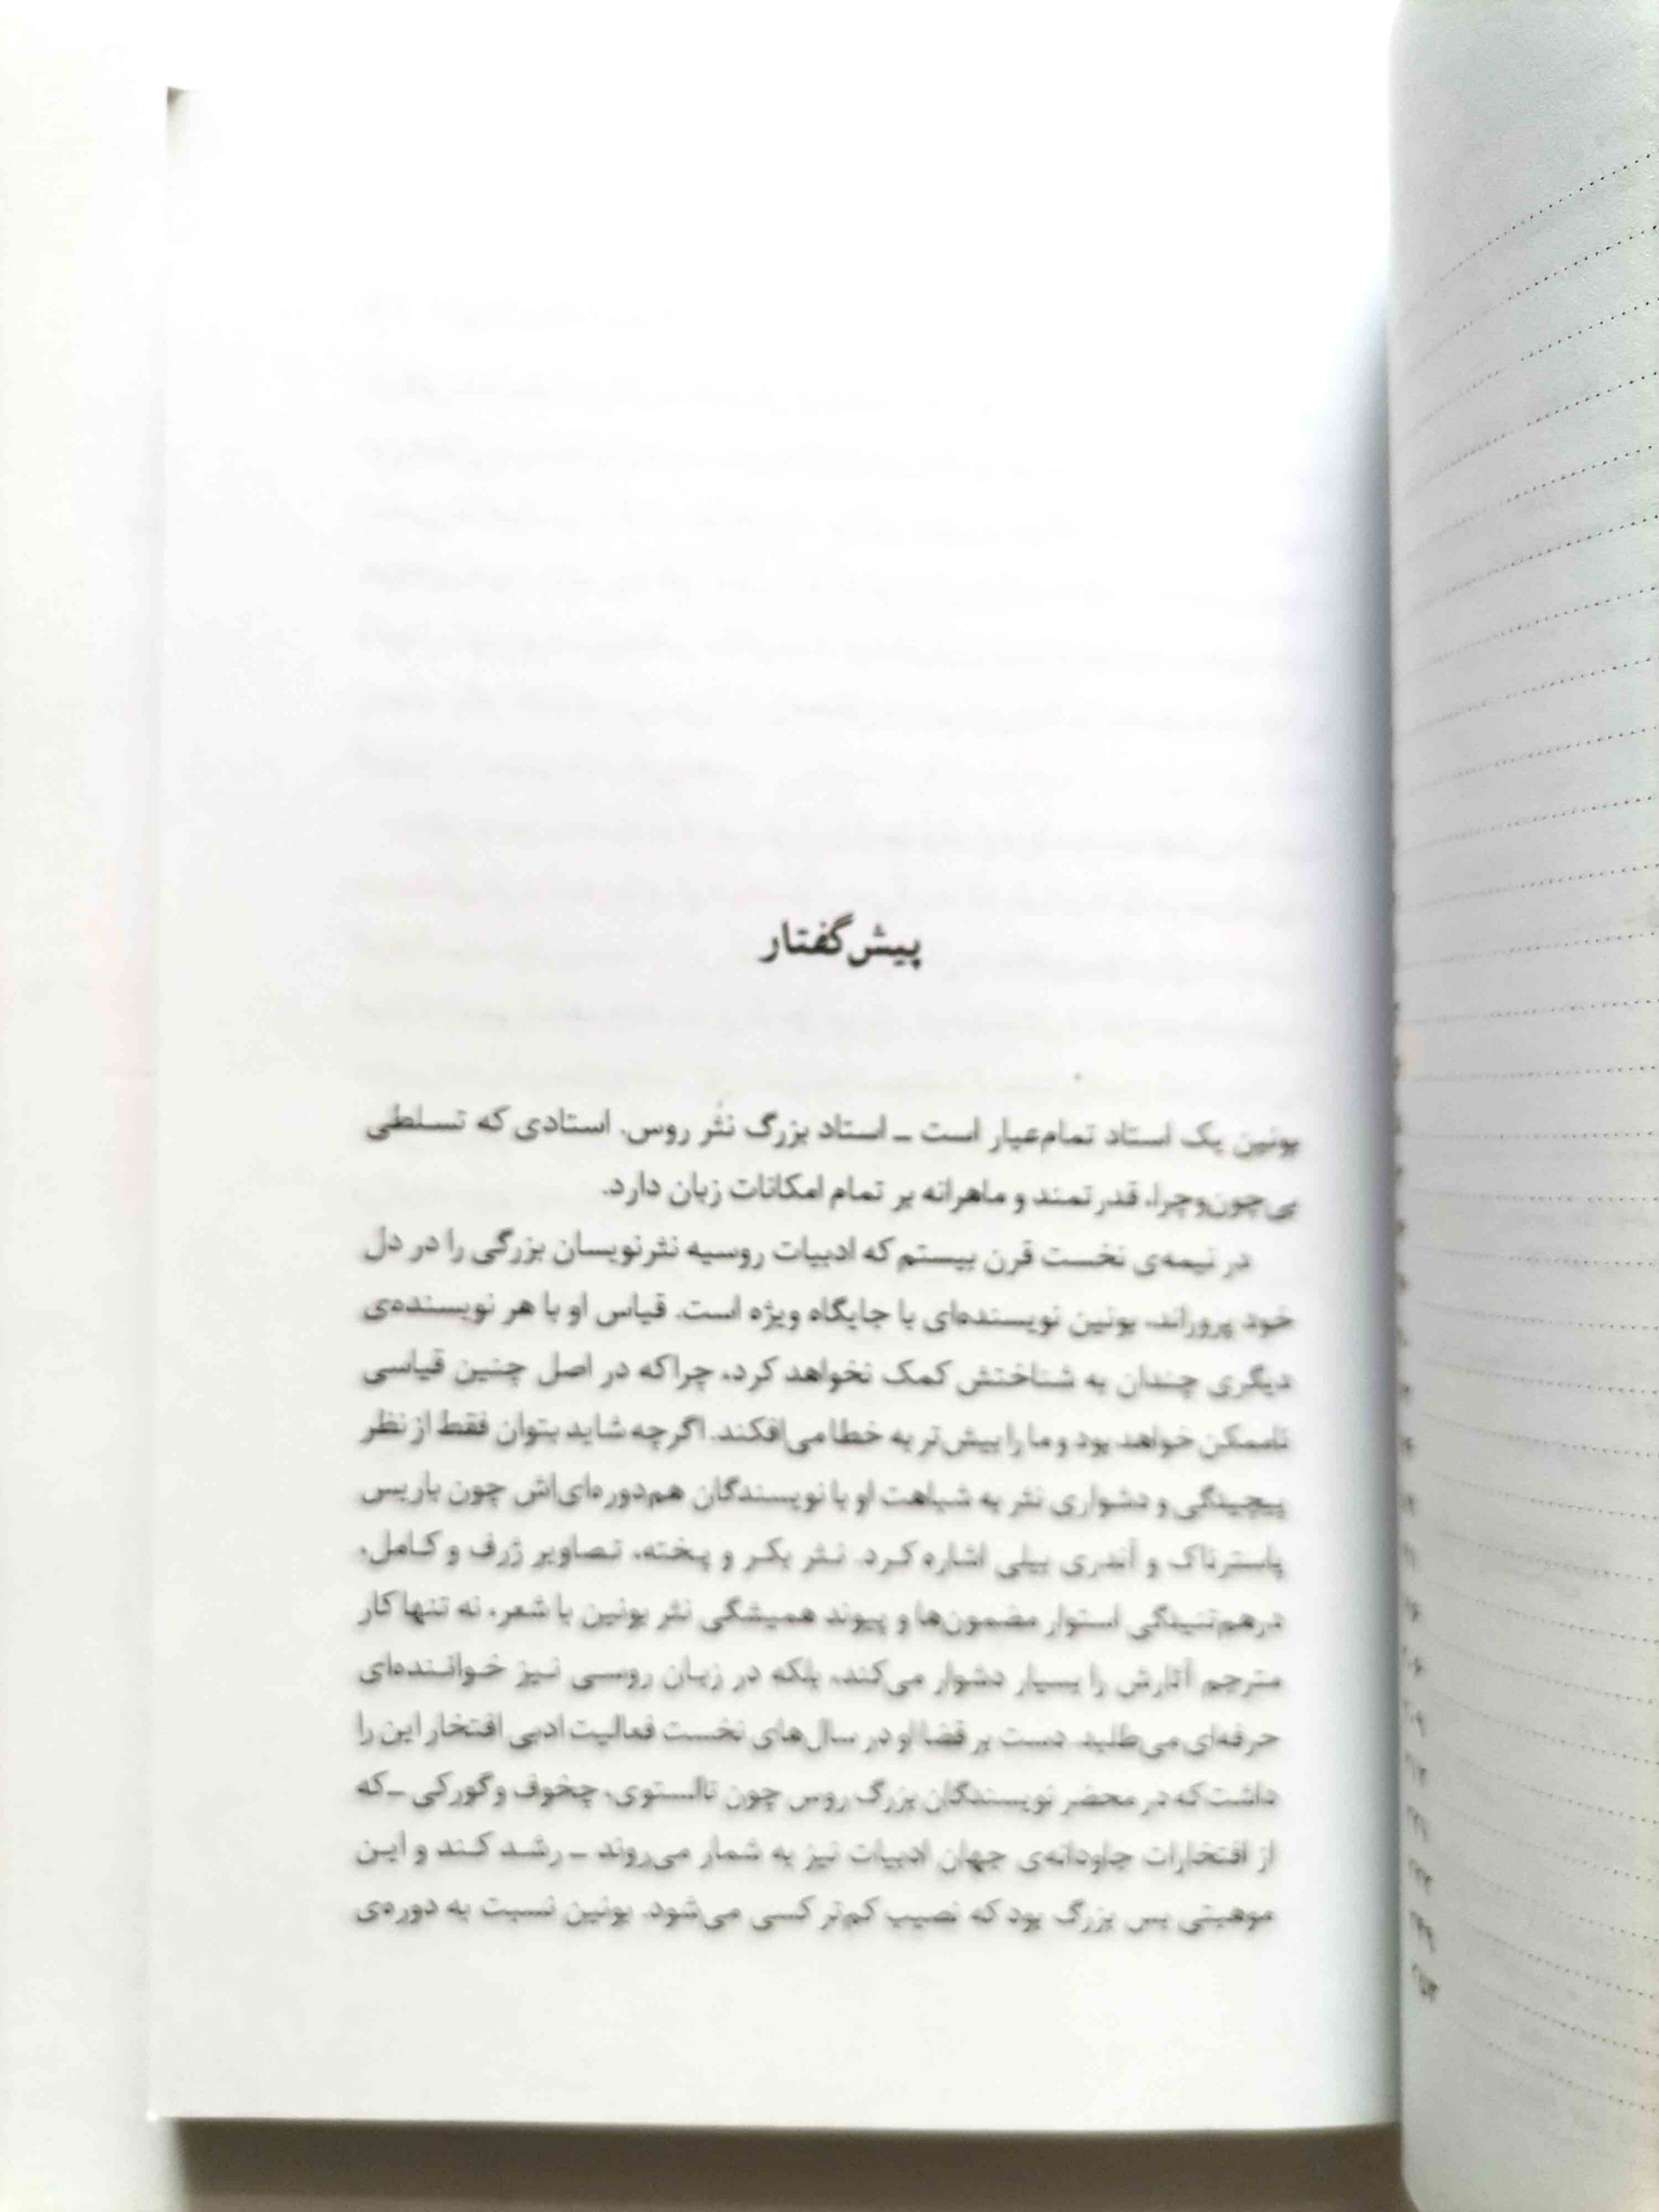 پیش‌گفتار
بونین یک استاد تمام‌عیار است ـ استاد بزرگ نثر روس. استادی که تسلطی
بی‌چون‌وچرا، قدرتمند و ماهرانه بر تمام امکانات زبان دارد.
در نیمه‌ی نخست قرن بیستم که ادبیات روسیه نثرنویسان بزرگی را در دل
خود پروراند، بونین نویسنده‌ای با جایگاه ویژه است. قیاس او با هر نویسنده‌ی
دیگری چندان به شناختش کمک نخواهد کرد، چراکه در اصل چنین قیاسی
ناممکن خواهد بود و ما را بیش‌تر به خطا می‌افکند. اگرچه شاید بتوان فقط از نظر
پیچیدگی و دشواری نثر به شباهت او با نویسندگان هم‌دوره‌ای‌اش چون باریس
پاسترناک و آندری بیلی اشاره کرد. نثر بکر و پخته، تصاویر ژرف و کامل،
درهم‌تنیدگی استوار مضمون‌ها و پیوند همیشگی نثر بونین با شعر، نه تنها کار
مترجم آثارش را بسیار دشوار می‌کند، بلکه در زبان روسی نیز خواننده‌ای
حرفه‌ای می‌طلبد. دست بر قضا او در سال‌های نخست فعالیت ادبی افتخار این را
داشت که در محضر نویسندگان بزرگ روس چون تالستوی، چخوف و گورکی ـ که
از افتخارات جاودانه‌ی جهان ادبیات نیز به شمار می‌روند ـ رشد کند و این
موهبتی بس بزرگ بود که نصیب کم‌تر کسی می‌شود. بونین نسبت به دوره‌ی